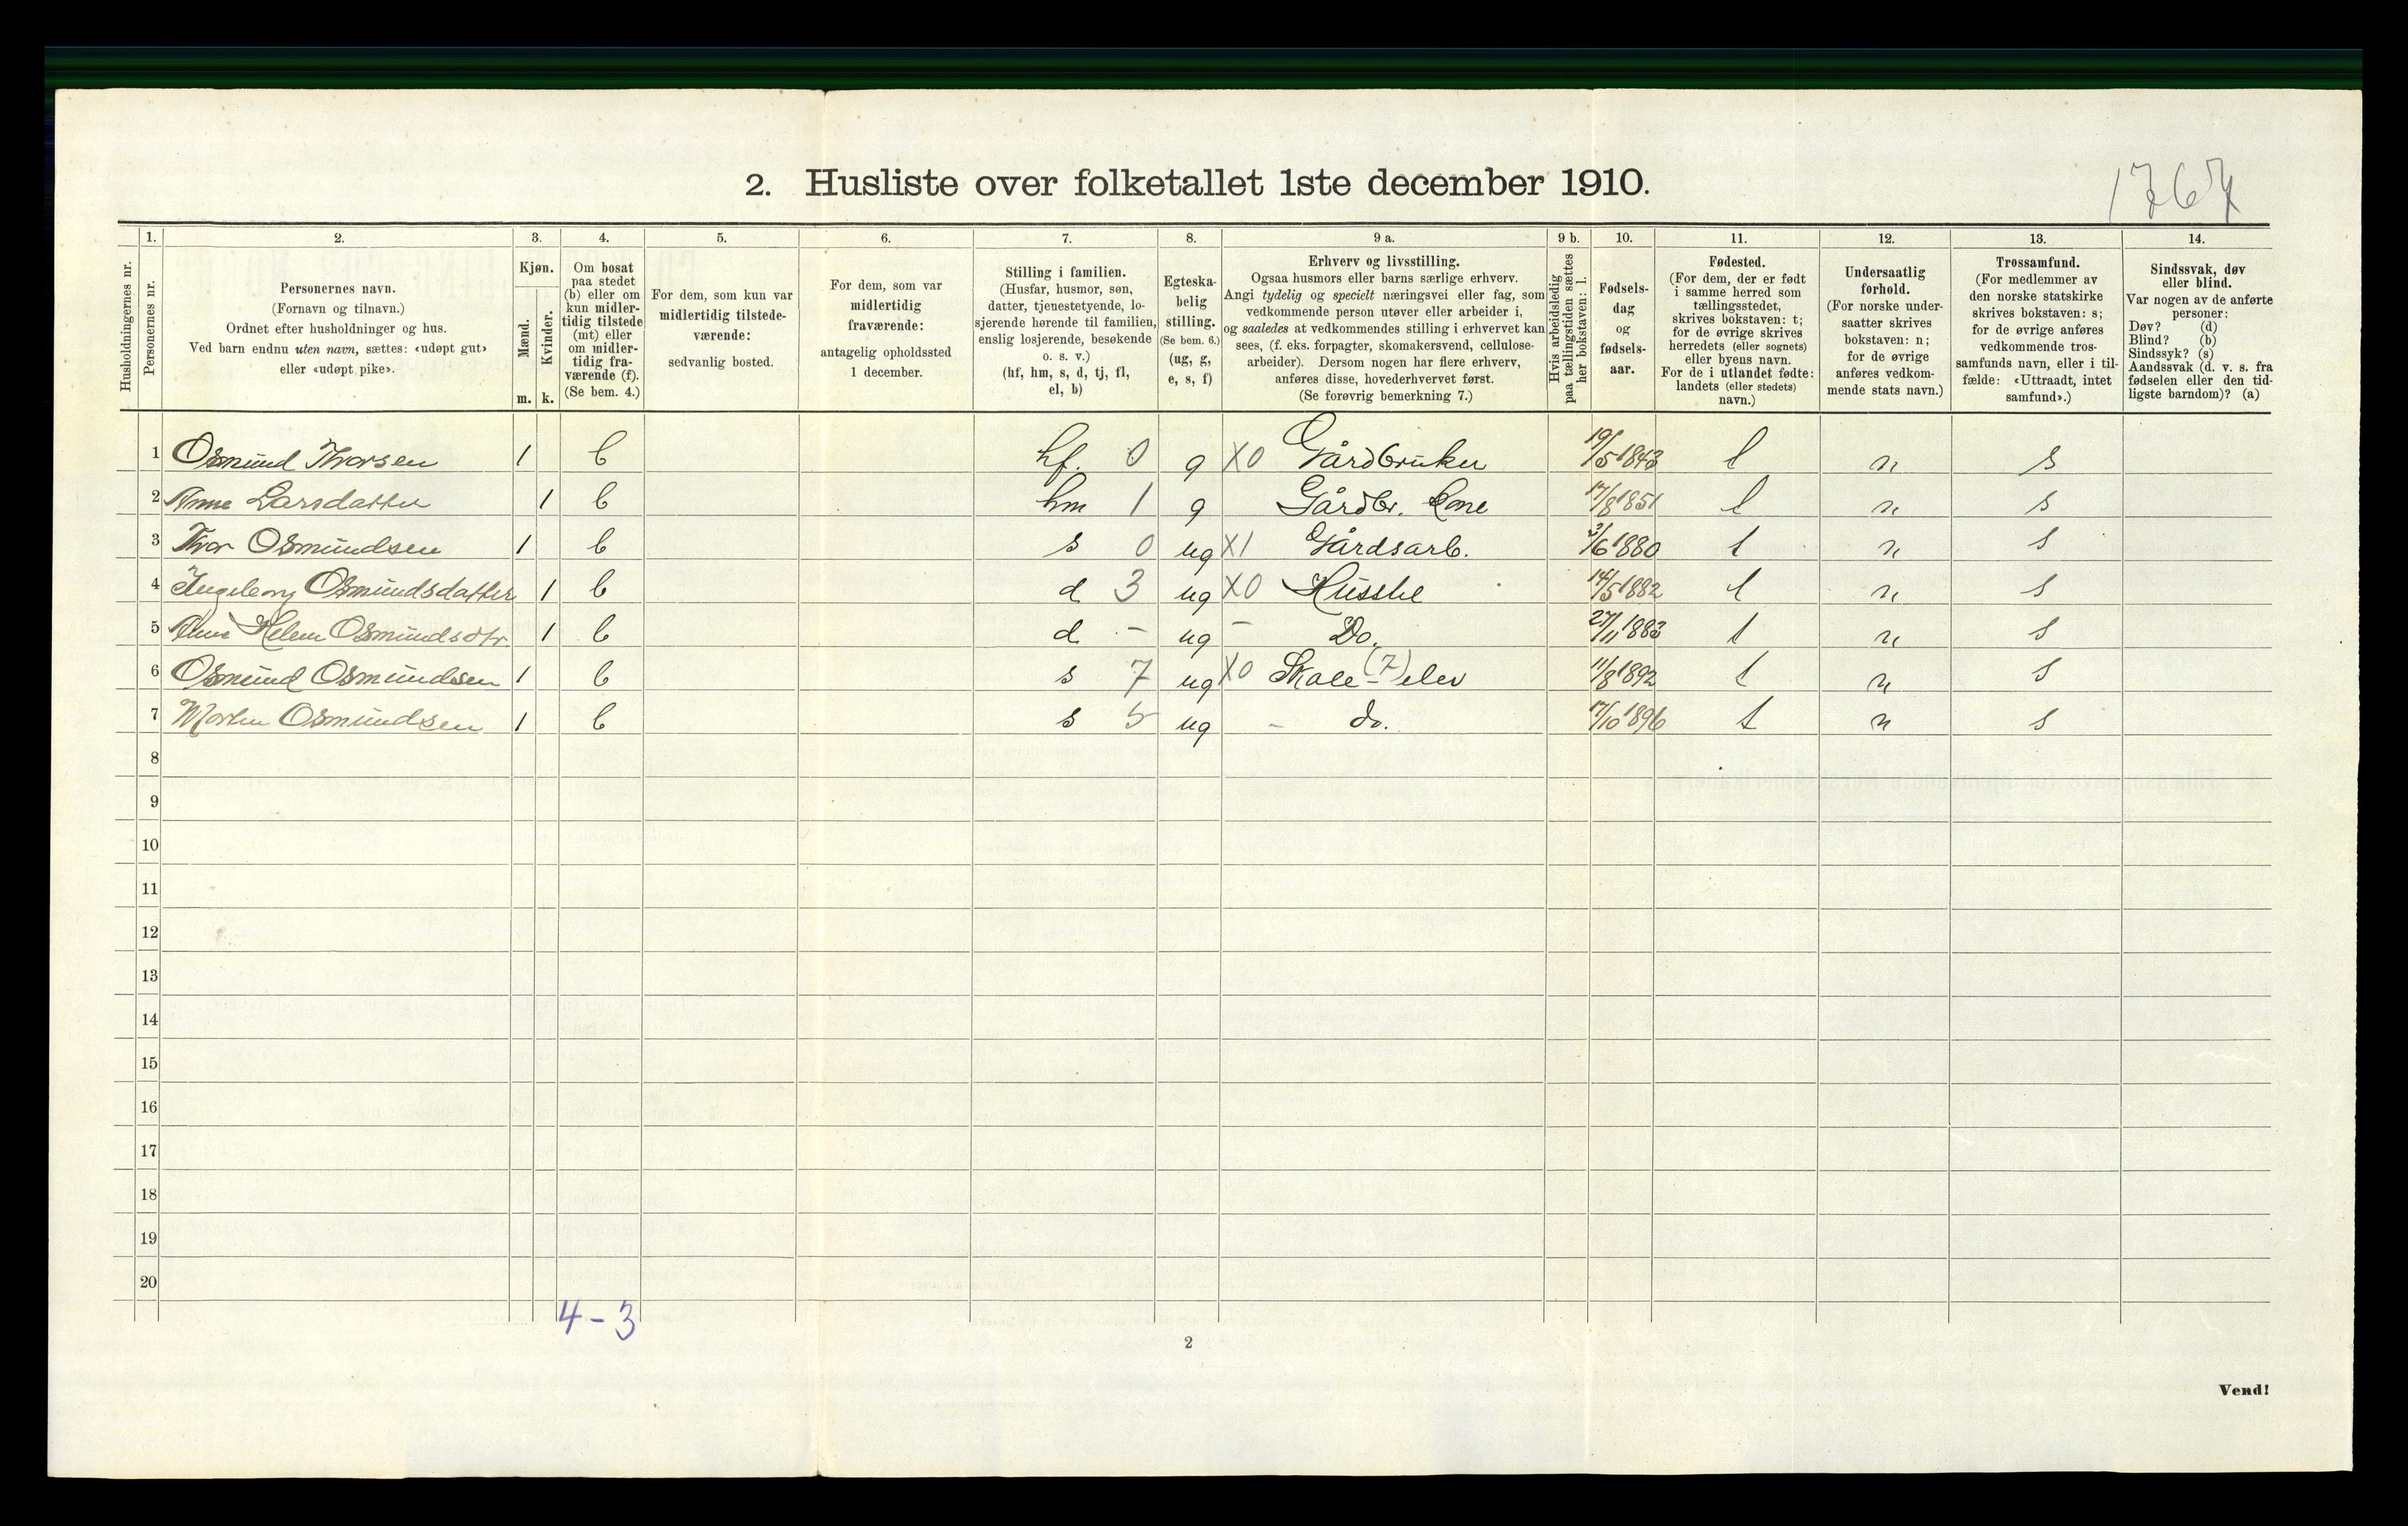 2. Husliste over folketallet 1ste december 1910.
1767
1. 2. 3. 4. 5. 6. 7. 8. 9 a. 9 b. 10. 11. 12. 13. 14.
Husholdningernes nr.
Personernes nr.
Personernes navn.
(Fornavn og tilnavn.)
Ordnet efter husholdninger og hus.
Ved barn endnu uten navn, sættes: «udøpt gut»
eller «udøpt pike».
Kjøn.
Mænd.
Kvinder.
m. k.
Om bosat
paa stedet
(b) eller om
kun midler-
tidig tilstede
(mt) eller
om midler-
tidig fra-
værende (f).
(Se bem. 4.)
For dem, som kun var
midlertidig tilstede-
værende:
sedvanlig bosted.
For dem, som var
midlertidig
fraværende:
antagelig opholdssted
1 december.
Stilling i familien.
(Husfar, husmor, søn,
datter, tjenestetyende, lo-
sjerende hørende til familien,
enslig losjerende, besøkende
o. s. v.)
(hf, hm, s, d, tj, fl,
el, b)
Egteska-
belig
stilling.
(Se bem. 6.)
(ug, g,
e, s, f)
Erhverv og livsstilling.
Ogsaa husmors eller barns særlige erhverv.
Angi tydelig og specielt næringsvei eller fag, som
vedkommende person utøver eller arbeider i,
og saaledes at vedkommendes stilling i erhvervet kan
sees, (f. eks. forpagter, skomakersvend, cellulose-
arbeider). Dersom nogen har flere erhverv,
anføres disse, hovederhvervet først.
(Se forøvrig bemerkning 7.)
Hvis arbeidsledig
paa tællingstiden sættes
her bokstaven: l.
Fødsels-
dag
og
fødsels-
aar.
Fødested.
(For dem, der er født
i samme herred som
tællingsstedet,
skrives bokstaven: t;
for de øvrige skrives
herredets (eller sognets)
eller byens navn.
For de i utlandet fødte:
landets (eller stedets)
navn.)
Undersaatlig
forhold.
(For norske under-
saatter skrives
bokstaven: n;
for de øvrige
anføres vedkom-
mende stats navn.)
Trossamfund.
(For medlemmer av
den norske statskirke
skrives bokstaven: s;
for de øvrige anføres
vedkommende tros-
samfunds navn, eller i til-
fælde: «Uttraadt, intet
samfund».)
Sindssvak, døv
eller blind.
Var nogen av de anførte
personer:
Døv? (d)
Blind? (b)
Sindssyk? (s)
Aandssvak (d. v. s. fra
fødselen eller den tid-
ligste barndom)? (a)
1 Osmund Thorsen 1 b hf. 0 g X0 Gårdbruker 19/5 1843 t n s
2 Anne Larsdatter 1 b hm 1 g Gårdbr. Kone 17/8 1851 t n s
3 Thor Osmundsen 1 b s 0 ug X1 Gårdsarb. 3/6 1880 t n s
4 Ingeborg Osmundsdatter 1 b d 3 ug X0 Husstel 14/5 1882 t n s
5 Helene Osmundsdtr. 1 b d - ug - Do. 27/11 1883 t n s
6 Osmund Osmundsen 1 b s 7 ug X0 Skole (7) elev 11/8 1892 t n s
7 Morten Osmundsen 1 b s 5 ug - do. 17/10 1896 t n s
8
9
10
11
12
13
14
15
16
17
18
19
20
4 - 3
2
Vend!